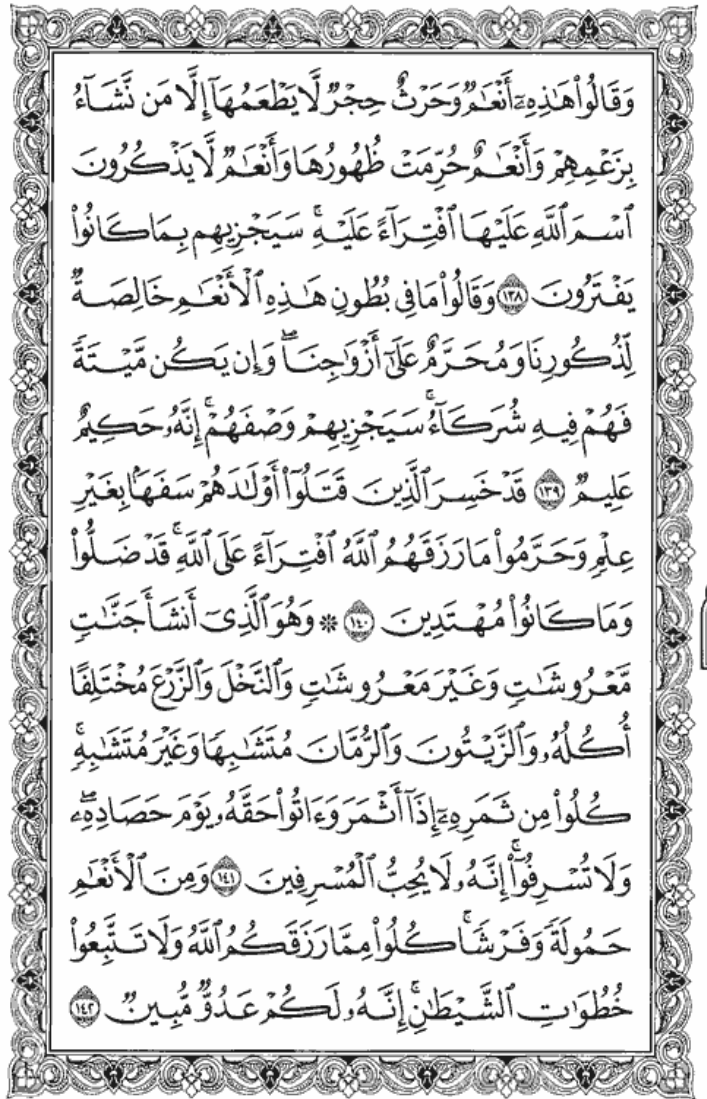 وَقَالُوا۟ هَـٰذِهِۦٓ أَنْعَـٰمٌ وَحَرْثٌ حِجْرٌ لَّا يَطْعَمُهَآ إِلَّا مَن نَّشَآءُ
بِزَعْمِهِمْ وَأَنْعَـٰمٌ حُرِّمَتْ ظُهُورُهَا وَأَنْعَـٰمٌ لَّا يَذْكُرُونَ
ٱسْمَ ٱللَّهِ عَلَيْهَا ٱفْتِرَآءً عَلَيْهِ ۚ سَيَجْزِيهِم بِمَا كَانُوا۟
يَفْتَرُونَ ١٣٨ وَقَالُوا۟ مَا فِى بُطُونِ هَـٰذِهِ ٱلْأَنْعَـٰمِ خَالِصَةٌ
لِّذُكُورِنَا وَمُحَرَّمٌ عَلَىٰٓ أَزْوَٰجِنَا ۖ وَإِن يَكُن مَّيْتَةً
فَهُمْ فِيهِ شُرَكَآءُ ۚ سَيَجْزِيهِمْ وَصْفَهُمْ ۚ إِنَّهُۥ حَكِيمٌ
عَلِيمٌ ١٣٩ قَدْ خَسِرَ ٱلَّذِينَ قَتَلُوٓا۟ أَوْلَـٰدَهُمْ سَفَهًۢا بِغَيْرِ
عِلْمٍ وَحَرَّمُوا۟ مَا رَزَقَهُمُ ٱللَّهُ ٱفْتِرَآءً عَلَى ٱللَّهِ ۚ قَدْ ضَلُّوا۟
وَمَا كَانُوا۟ مُهْتَدِينَ ١٤٠ ۞ وَهُوَ ٱلَّذِىٓ أَنشَأَ جَنَّـٰتٍ
مَّعْرُوشَـٰتٍ وَغَيْرَ مَعْرُوشَـٰتٍ وَٱلنَّخْلَ وَٱلزَّرْعَ مُخْتَلِفًا
أُكُلُهُۥ وَٱلزَّيْتُونَ وَٱلرُّمَّانَ مُتَشَـٰبِهًا وَغَيْرَ مُتَشَـٰبِهٍ ۚ
كُلُوا۟ مِن ثَمَرِهِۦٓ إِذَآ أَثْمَرَ وَءَاتُوا۟ حَقَّهُۥ يَوْمَ حَصَادِهِۦ ۖ
وَلَا تُسْرِفُوٓا۟ ۚ إِنَّهُۥ لَا يُحِبُّ ٱلْمُسْرِفِينَ ١٤١ وَمِنَ ٱلْأَنْعَـٰمِ
حَمُولَةً وَفَرْشًا ۚ كُلُوا۟ مِمَّا رَزَقَكُمُ ٱللَّهُ وَلَا تَتَّبِعُوا۟
خُطُوَٰتِ ٱلشَّيْطَـٰنِ ۚ إِنَّهُۥ لَكُمْ عَدُوٌّ مُّبِينٌ ١٤٢